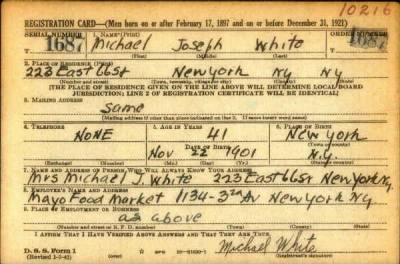 10216
REGISTRATION CARD—(Men born on or after February 17, 1897 and on or before December 31, 1921)
SERIAL NUMBER 1. NAME (Print) ORDER NUMBER
1687 Michael Joseph White 1687
(First) (Middle) (Last)
2. PLACE OF RESIDENCE (Print)
223 East 66 St New York Ny Ny
(Number and street) (Town, township, village, or city) (County) (State)
[THE PLACE OF RESIDENCE GIVEN ON THE LINE ABOVE WILL DETERMINE LOCAL BOARD
JURISDICTION; LINE 2 OF REGISTRATION CERTIFICATE WILL BE IDENTICAL]
3. MAILING ADDRESS
Same
[Mailing address if other than place indicated on line 2. If same insert word same]
4. TELEPHONE 5. AGE IN YEARS 6. PLACE OF BIRTH
NONE 41 New York
DATE OF BIRTH (Town or county)
Nov 22 1901 N.Y.
(Exchange) (Number) (Mo.) (Day) (Yr.) (State or country)
7. NAME AND ADDRESS OF PERSON WHO WILL ALWAYS KNOW YOUR ADDRESS
Mrs Michael J. White 223 East 66 St New York Ny.
8. EMPLOYER'S NAME AND ADDRESS
Mayo Food Market 1134-3rd Av New York Ny.
9. PLACE OF EMPLOYMENT OR BUSINESS
as above
(Number and street or R. F. D. number) (Town) (County) (State)
I AFFIRM THAT I HAVE VERIFIED ABOVE ANSWERS AND THAT THEY ARE TRUE.
D. S. S. Form 1
(Revised 1-5-42) Michael White